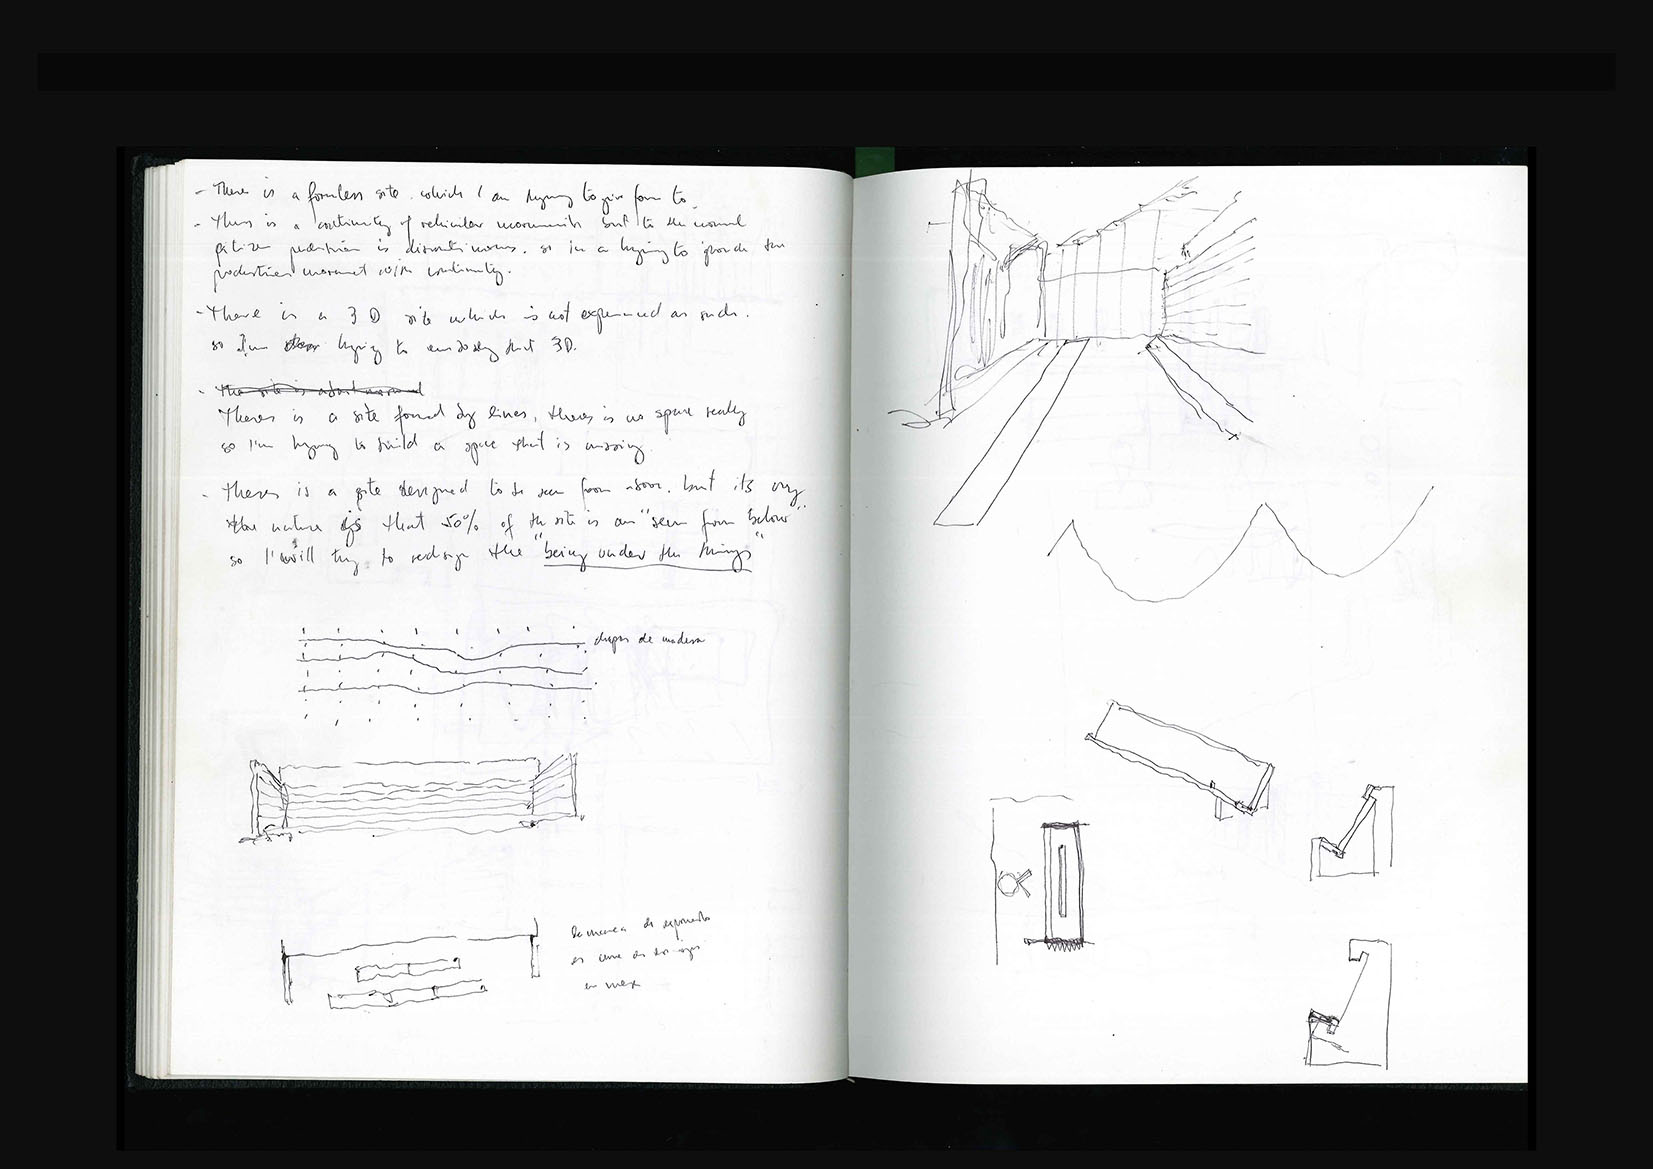 - There is a formless site. which I am trying to give form to.
- There is a continuity of vehicular movements but to the normal
pedestrian is discontinuous. so im a trying to provide the
pedestrian movement with continuity.
- There is a 3D site which is not experienced as such.
so I'm trying to embody that 3D.
- The site is about
Theres is a site formed by lines, theres is no space really
so I'm trying to build a space that is missing.
- theres is a site designed to be seen from above. but its very
the nature is that 50% of the site is an "seen from below"
so I will try to redesign the "being under the things"
chapas de madera
en